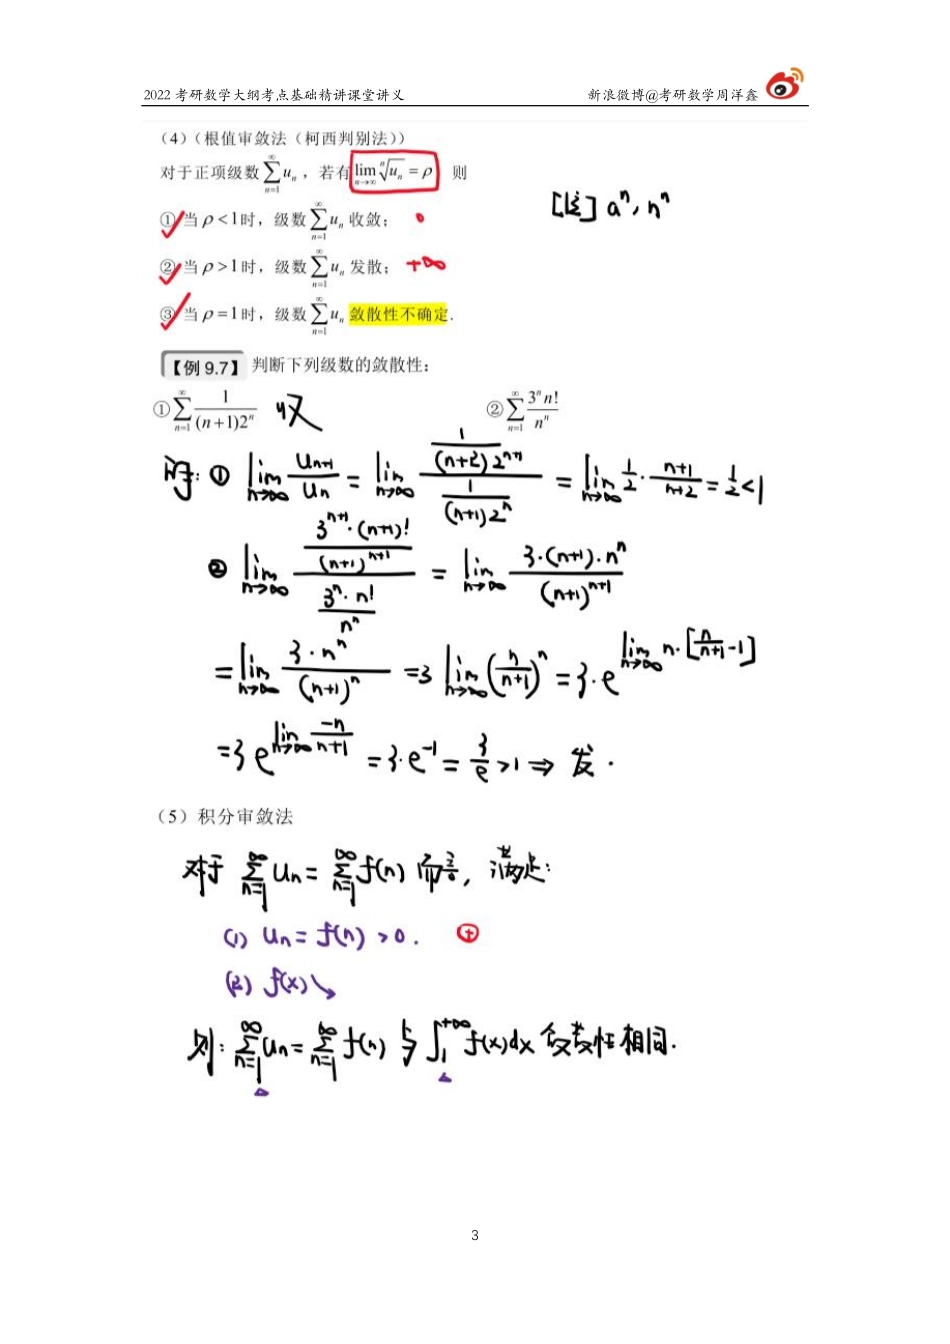 2022 考研数学大纲考点基础精讲课堂讲义 新浪微博@考研数学周洋鑫
(4)(根值审敛法(柯西判别法))
对于正项级数 ∑_{n=1}^{∞} u_n ,若有 lim_{n→∞} ⁿ√u_n = ρ 则
[注] aⁿ, nⁿ
①当 ρ<1时,级数 ∑_{n=1}^{∞} u_n 收敛; 0
②当 ρ>1时,级数 ∑_{n=1}^{∞} u_n 发散; +∞
③当 ρ=1时,级数 ∑_{n=1}^{∞} u_n 敛散性不确定.
【例 9.7】 判断下列级数的敛散性:
① ∑_{n=1}^{∞} 1/((n+1)2ⁿ) 收 ② ∑_{n=1}^{∞} 3ⁿn!/nⁿ
解: ① lim_{n→∞} u_{n+1}/u_n = lim_{n→∞} (1/((n+2)2^{n+1}))/(1/((n+1)2ⁿ)) = lim_{n→∞} 1/2 · (n+1)/(n+2) = 1/2 <1
② lim_{n→∞} (3^{n+1}·(n+1)!/(n+1)^{n+1})/(3ⁿ·n!/nⁿ) = lim_{n→∞} 3·(n+1)·nⁿ/(n+1)^{n+1}
= lim_{n→∞} 3·nⁿ/(n+1)ⁿ = 3 lim_{n→∞} (n/(n+1))ⁿ = 3·e^{lim_{n→∞} n·[n/(n+1) -1]}
= 3 e^{lim_{n→∞} -n/(n+1)} = 3·e^{-1} = 3/e >1 ⇒ 发.
(5)积分审敛法
对于 ∑_{n=1}^{∞} u_n = ∑_{n=1}^{∞} f(n) 而言, 满足:
(1) u_n = f(n) >0. ⊕
(2) f(x)↘
则: ∑_{n=1}^{∞} u_n = ∑_{n=1}^{∞} f(n) 与 ∫_1^{+∞} f(x)dx 敛散性相同.
3